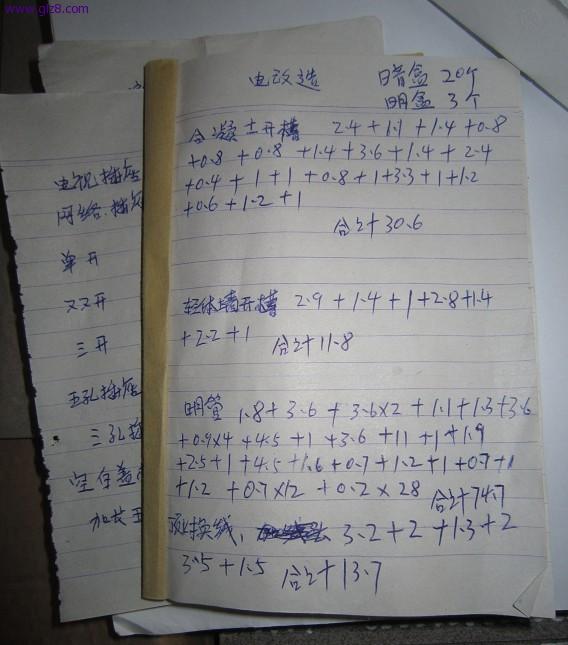 www.glz8.com
电改造 暗盒 20个
明盒 3个
合凝土开槽 2.4+1.1+1.4+0.8
+0.8+0.8+1.4+3.6+1.4+2.4
+0.4+1+1+0.8+1+3.3+1+1.2
+0.6+1.2+1
合计30.6
轻体墙开槽 2.9+1.4+1+2.8+1.4
+2.2+1 合计11.8
明管 1.8+3.6+3.6×2+1.1+1.3+3.6
+0.9×4+4.5+1+3.6+11+1+1.9
+2.5+1+4.5+1.6+0.7+1.2+1+0.7+1
+1.2+0.7×12+0.2×28 合计74.7
换线, 3.2+2+1.3+2
3.5+1.5 合计13.7
电视插座
网络插
单开
双开
三开
五孔插座
三孔
空白盖
加长